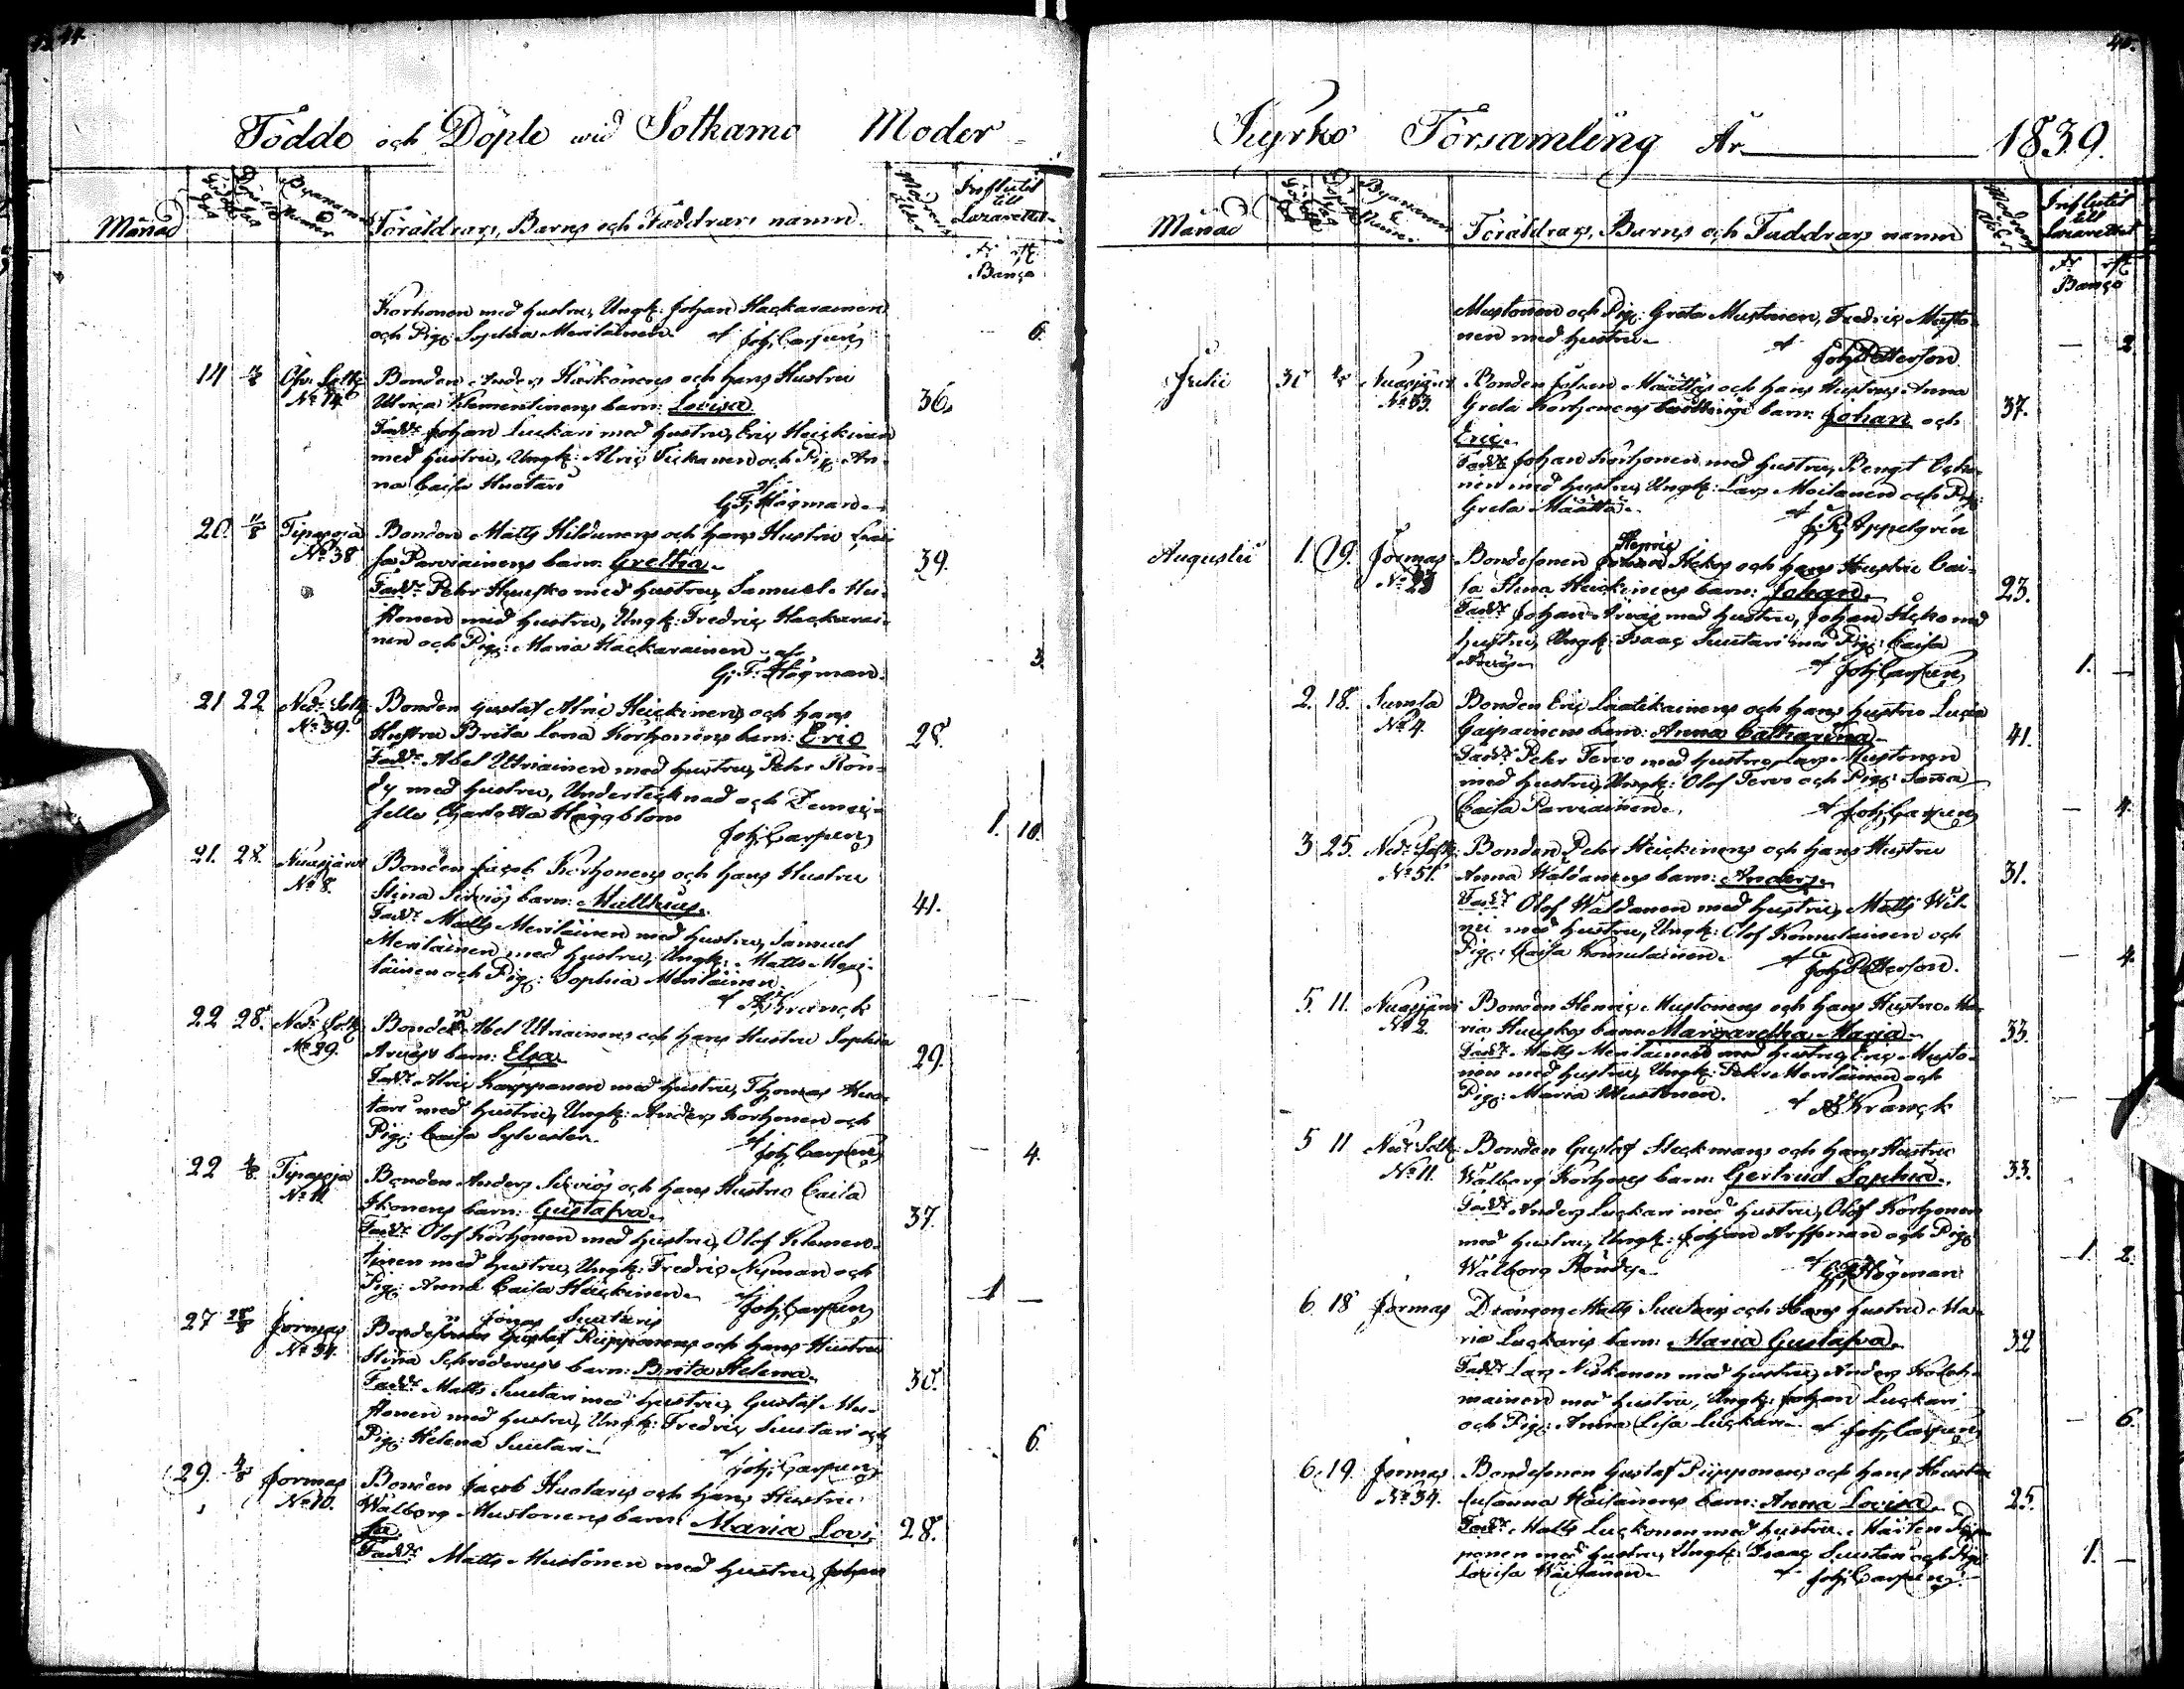 44.
Födde och Döpte wid Sotkamo Moder-
Månad
Födelse Dag
Döpelse Dag
Bynamn & Nummer
Föräldrars, Barns och Faddrars namn
Modrens ålder
Influtit till Lazarettet
Banco
Korhonen med hustru, Ungk: Johan Hackarainen
och Pig: Sophia Meriläinen af Joh: Carpén
6.
14 Öfr. Sotk: Bonden Anders Härkönens och hans Hustru
No 14. Ulrica Klementinens barn: Lovisa 36.
Fadd: Johan Luckari med hustru, Eric Heickinen
med hustru, Ungk: Alric Tickanen och Pig: An-
na Caisa Huotari af
G: F: Högman
20. Tipasoja Bonden Matts Hildunens och hans Hustru Loui-
No 38 sa Parviainens barn: Gretha 39.
Fadd: Pehr Huusko med hustru, Samuel Mu-
stonen med hustru, Ungk: Fredric Hackarai-
nen och Pig: Maria Hackarainen af
G: F: Högman 3.
21 22 Nedr. Sotk: Bonden Gustaf Alric Heickinens och hans
No 39. Hustru Brita Lena Korhonens barn: Eric 28.
Fadd: Abel Utriainen med hustru, Pehr Rön-
dy med hustru, Undertecknad och Demoi-
selle Charlotta Häggblom
Joh: Carpén 1. 10.
21. 28. Nuasjärvi Bonden Jacob Korhonens och hans Hustru
No 8. Stina Sirviös barn: Matthias 41.
Fadd: Matts Meriläinen med hustru, Samuel
Meriläinen med hustru, Ungk: Matts Meri-
läinen och Pig: Sophia Meriläinen
af A: Kranck
22 28. Nedr. Sotk: Bonden Abel Utriainens och hans Hustru Sophia
No 29. Arviäs barn: Elsa 29.
Fadd: Alric Karppanen med hustru, Thomas Huo-
tari med hustru, Ungk: Anders Korhonen och
Pig: Caisa Sylvester af Joh: Carpén 4.
22 4/8. Tipasoja Bonden Anders Sirviös och hans Hustru Caisa
No 11. Ikonens barn: Gustafva 37.
Fadd: Olof Korhonen med hustru, Olof Klemen-
tinen med hustru, Ungk: Fredric Nyman och
Pig: Anna Caisa Häickinen af Joh: Carpén 1
n Jonas Suutaris
27 28/8 Jormas Bondesonen Gustaf Piipponens och hans Hustru
No 34. Stina Schröderus's barn: Brita Helena 30.
Fadd: Matts Suutari med hustru, Gustaf Mu-
stonen med hustru, Ungk: Fredric Suutari och
Pig: Helena Suutari af Joh: Carpén 6.
29. 4/8 Jormas Bonden Jacob Huotaris och hans Hustru
No 10. Walborg Mustonens barn: Maria Lovi- 28.
sa
Fadd: Matts Mustonen med hustru, Johan
45.
Kyrko Församling År 1839.
Månad
Födelse Dag
Döpelse Dag
Bynamn & Numro
Föräldrars, Barns och Faddrars namn
Modrens ålder
Influtit till Lazarettet
Banco
Mustonen och Pig: Greta Mustonen, Fredric Musto-
nen med hustru af Joh: Petterson 2
Julii 30 Nuasjärvi Bonden Johan Määttäs och hans Hustrus Anna
No 53. Greta Korhonens tvillinge barn: Johan och 37.
Eric
Fadd: Johan Korhonen med hustru, Bengt Ocko-
nen med hustru, Ungk: Lars Moilanen och Pig:
Greta Määttä af
J: R: Appelgrén
Henric
Augusti 1. 19. Jormas Bondesonen Johan Heikos och hans Hustru Cai-
No 23 sa Stina Heickinens barn: Johan 23.
Fadd: Johan Arviäs med hustru, Johan Heiko med
hustru, Ungk: Isaac Suutari med Pig: Caisa
Arviäs af Joh: Carpén 1.
2. 18. Sumsa Bonden Eric Laatikainens och hans Hustru Lucia
No 4. Gaipainens barn: Anna Catharina 41.
Fadd: Pehr Tervo med hustru, Lars Mustonen
med hustru, Ungk: Olof Tervo och Pig: Anna
Caisa Parviainen af Joh: Carpén 4.
3 25. Nedr. Sotk: Bonden Pehr Heickinens och hans Hustru
No 51. Anna Waldanens barn: Anders 31.
Fadd: Olof Waldanen med hustru, Matts Wil-
mi med hustru, Ungk: Olof Komulainen och
Pig: Caisa Komulainen af Joh: Petterson. 4.
5. 11. Nuasjärvi Bonden Henric Mustonens och hans Hustru Ma-
No 2. ria Huuskos barn: Margaretha Maria 33.
Fadd: Matts Meriläinen med hustru, Eric Musto-
nen med hustru, Ungk: Pehr Meriläinen och
Pig: Maria Mustonen. af A: Kranck
5 11 Nedr. Sotk: Bonden Gustaf Stickmans och hans Hustru
No 11. Walborg Korhones barn: Gertrud Sophia 33.
Fadd: Anders Luckari med hustru, Olof Korhonen
med hustru, Ungk: Johan Arffman och Pig:
Walborg Röndy af G: F: Högman 1. 2.
6. 18 Jormas Drängen Matts Suutaris och hans Hustru Ma-
ria Luckaris barn: Maria Gustafva 32
Fadd: Lars Niskanen med hustru, Anders Koleh-
mainen med hustru, Ungk: Johan Luckari
och Pig: Anna Lisa Luckari af Joh: Carpén 6.
6. 19. Jormas Bondesonen Gustaf Piipponens och hans Hustru
No 34. Susanna Väisänens barn: Anna Lovisa 25.
Fadd: Matts Luckonen med hustru, Mårten Piip-
ponen med hustru, Ungk: Isaac Suutari och Pig:
Lovisa Väisänen af Joh: Carpén 1.